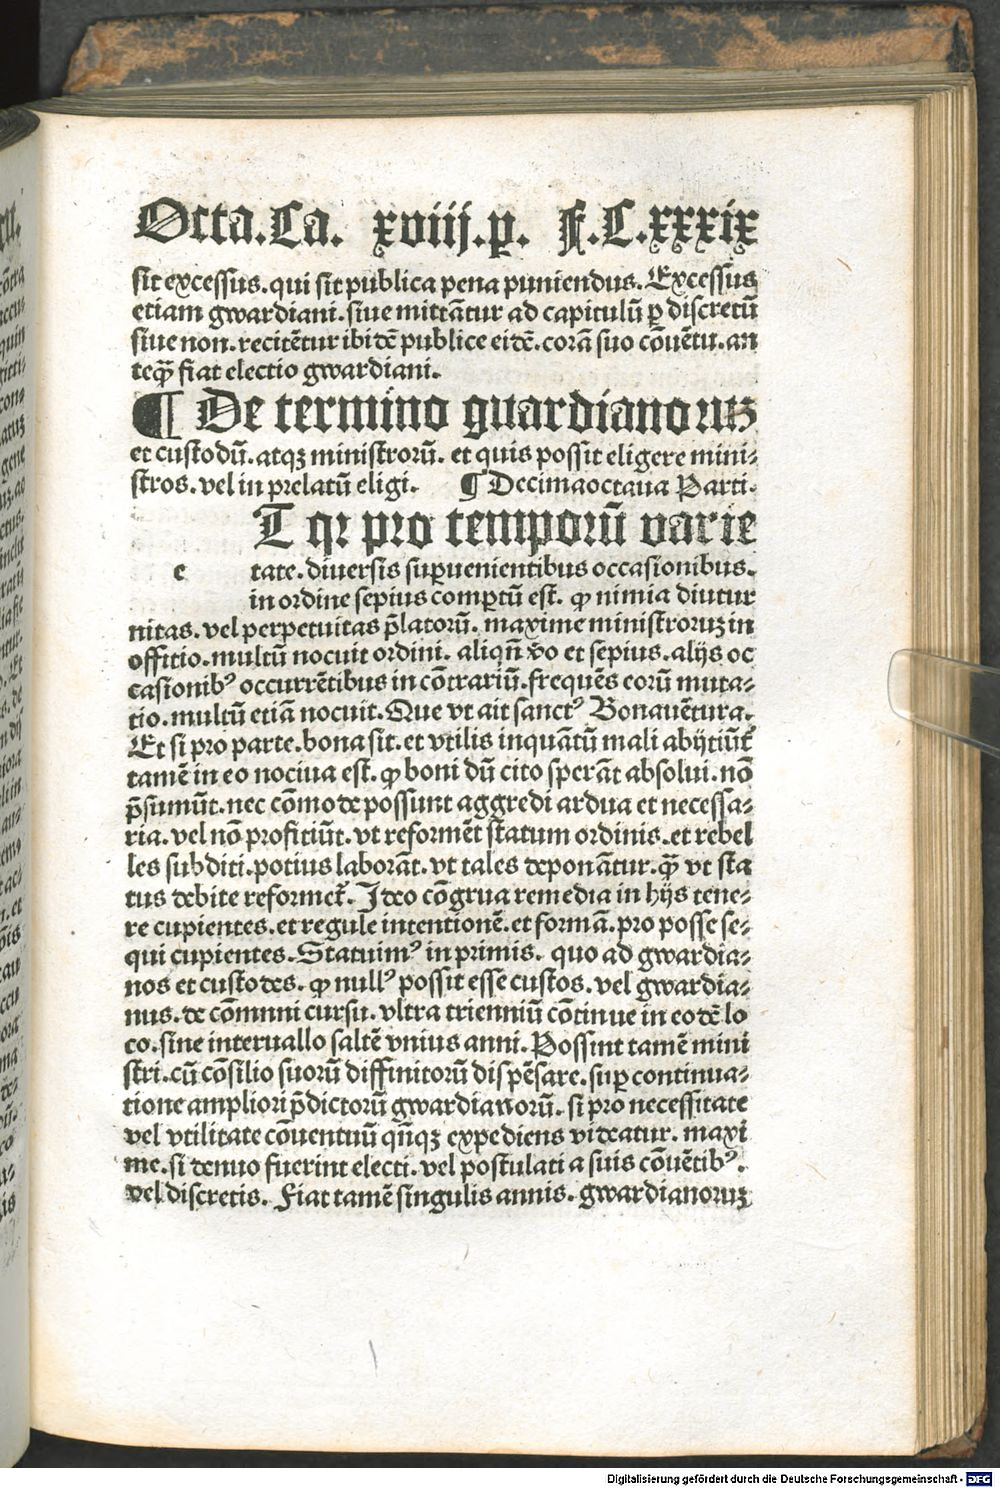 Octa.Ca. xviij.p. F.C.xxxix
sit excessus. qui sit publica pena puniendus. Excessus
etiam gwardiani. siue mittãtur ad capitulũ ꝑ discretũ
siue non. recitẽtur ibidẽ publice eidẽ. corã suo cõuẽtu. an
teqꝫ̃ fiat electio gwardiani.
¶ De termino guardianoꝛuꝫ
et custodũ. atqꝫ ministrorũ. et quis possit eligere mini⸗
stros. vel in prelatũ eligi. ¶ Decimaoctaua Parti.
T qꝛ pro temporũ varie
e tate. diuersis suꝑuenientibus occasionibus.
in ordine sepius comꝑtũ est. ꝙ nimia diutur
nitas. vel perpetuitas p̃latorũ. maxime ministroruꝫ in
offitio. multũ nocuit ordini. aliqñ v̊o et sepius. alijs oc
casionibꝰ occurrẽtibus in cõtrariũ. frequẽs eorũ muta⸗
tio. multũ etiã nocuit. Que vt ait sanctꝰ Bonauẽtura.
Et si pro parte. bona sit. et vtilis inquãtũ mali abijtiũt̃
tamẽ in eo nociua est. ꝙ boni dũ cito sperãt absolui. nõ
p̃sumũt. nec cõmode possunt aggredi ardua et necessa⸗
ria. vel nõ profitiũt. vt reformẽt statum ordinis. et rebel
les subditi. potius laborãt. vt tales deponãtur. qꝫ̃ vt sta
tus debite reformet̃. Ideo cõgrua remedia in hijs tene⸗
re cupientes. et regule intentionẽ. et formã. pro posse se⸗
qui cupientes. Statuimꝰ in primis. quo ad gwardia⸗
nos et custodes. ꝙ nullꝰ possit esse custos. vel gwardia⸗
nus. de cõmnni cursu. vltra trienniũ cõtinue in eodẽ lo
co. sine interuallo saltẽ vnius anni. Possint tamẽ mini
stri. cũ cõsilio suorũ diffinitorũ dispẽsare. suꝑ continua⸗
tione ampliori p̃dictorũ gwardianorũ. si pro necessitate
vel vtilitate cõuentuũ qñqꝫ expediens videatur. maxi
me. si denuo fuerint electi. vel postulati a suis cõuẽtibꝰ.
vel discretis. Fiat tamẽ singulis annis. gwardianoruꝫ
Digitalisierung gefördert durch die Deutsche Forschungsgemeinschaft - DFG